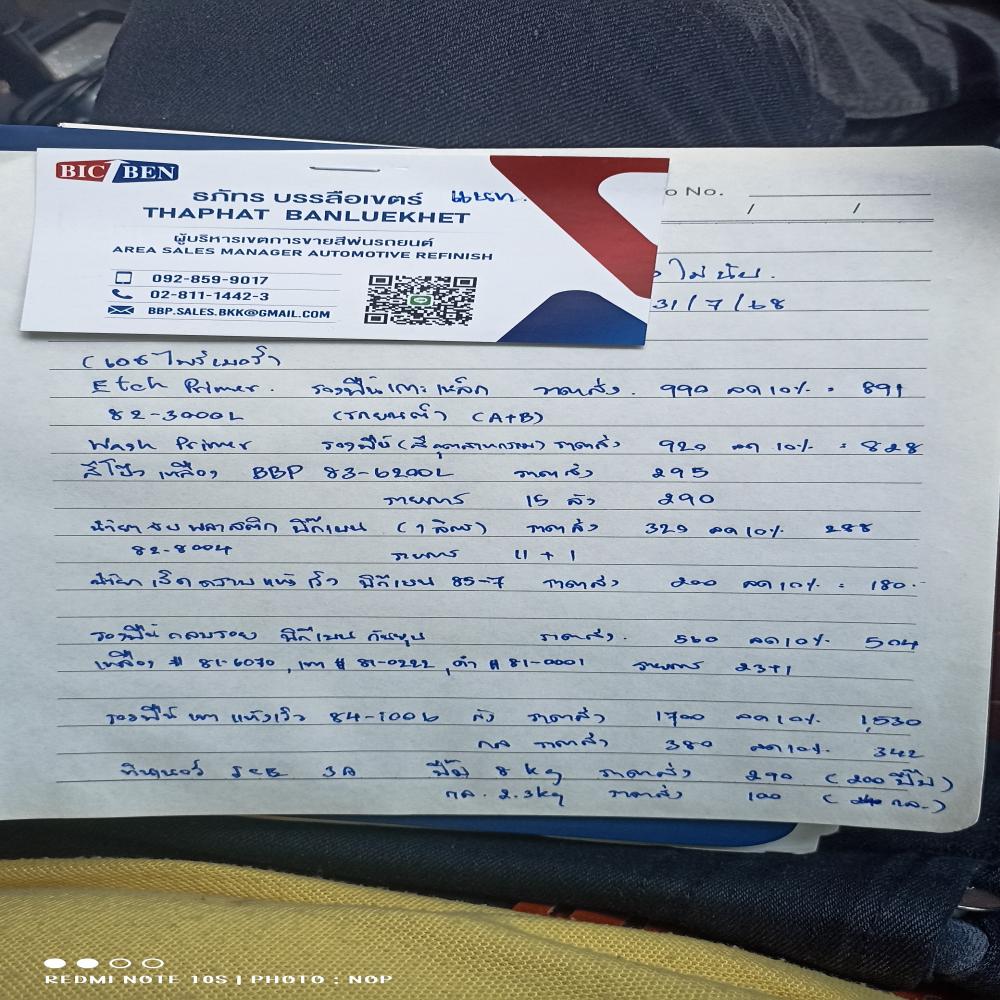 BIC BEN
ธภัทร บรรลือเขตร์ แนท.
THAPHAT BANLUEKHET
ผู้บริหารเขตการขายสีพ่นรถยนต์
AREA SALES MANAGER AUTOMOTIVE REFINISH
092-859-9017
02-811-1442-3
BBP.SALES.BKK@GMAIL.COM
o No.
/ /
31/7/68
Etch Primer. รองพื้นเกาะเหล็ก ราคาส่ง. 990 ลด 10% = 891
82-3000L (รถยนต์) (A+B)
Wash Primer รองพื้น (สีอุตสาหกรรม) ราคาส่ง 920 ลด 10% = 828
สีโป๊ว เหลือง BBP 83-6200L ราคาส่ง 295
รายการ 15 ลัง 290
น้ำยา พลาสติก บิ๊กเบน (1 ลิตร) ราคาส่ง 320 ลด 10% 288
82-8004 รายการ 11 + 1
น้ำยาเช็ดคราบ แห้งเร็ว บิ๊กเบน 85-7 ราคาส่ง 200 ลด 10% = 180.-
รองพื้น กลบรอย บิ๊กเบน กันซึม ราคาส่ง. 560 ลด 10% 504
เหลือง # 81-6070, เทา # 81-0222, ดำ # 81-0001 รายการ 23+1
รองพื้น เทา แห้งเร็ว 84-1006 ราคาส่ง 1700 ลด 10% 1,530
กล ราคาส่ง 380 ลด 10% 342
ทินเนอร์ 3A ปี๊บ 8 kg ราคาส่ง 290 (200 ปี๊บ)
กล. 2.3kg ราคาส่ง 100 ( กล.)
REDMI NOTE 10S | PHOTO : NOP